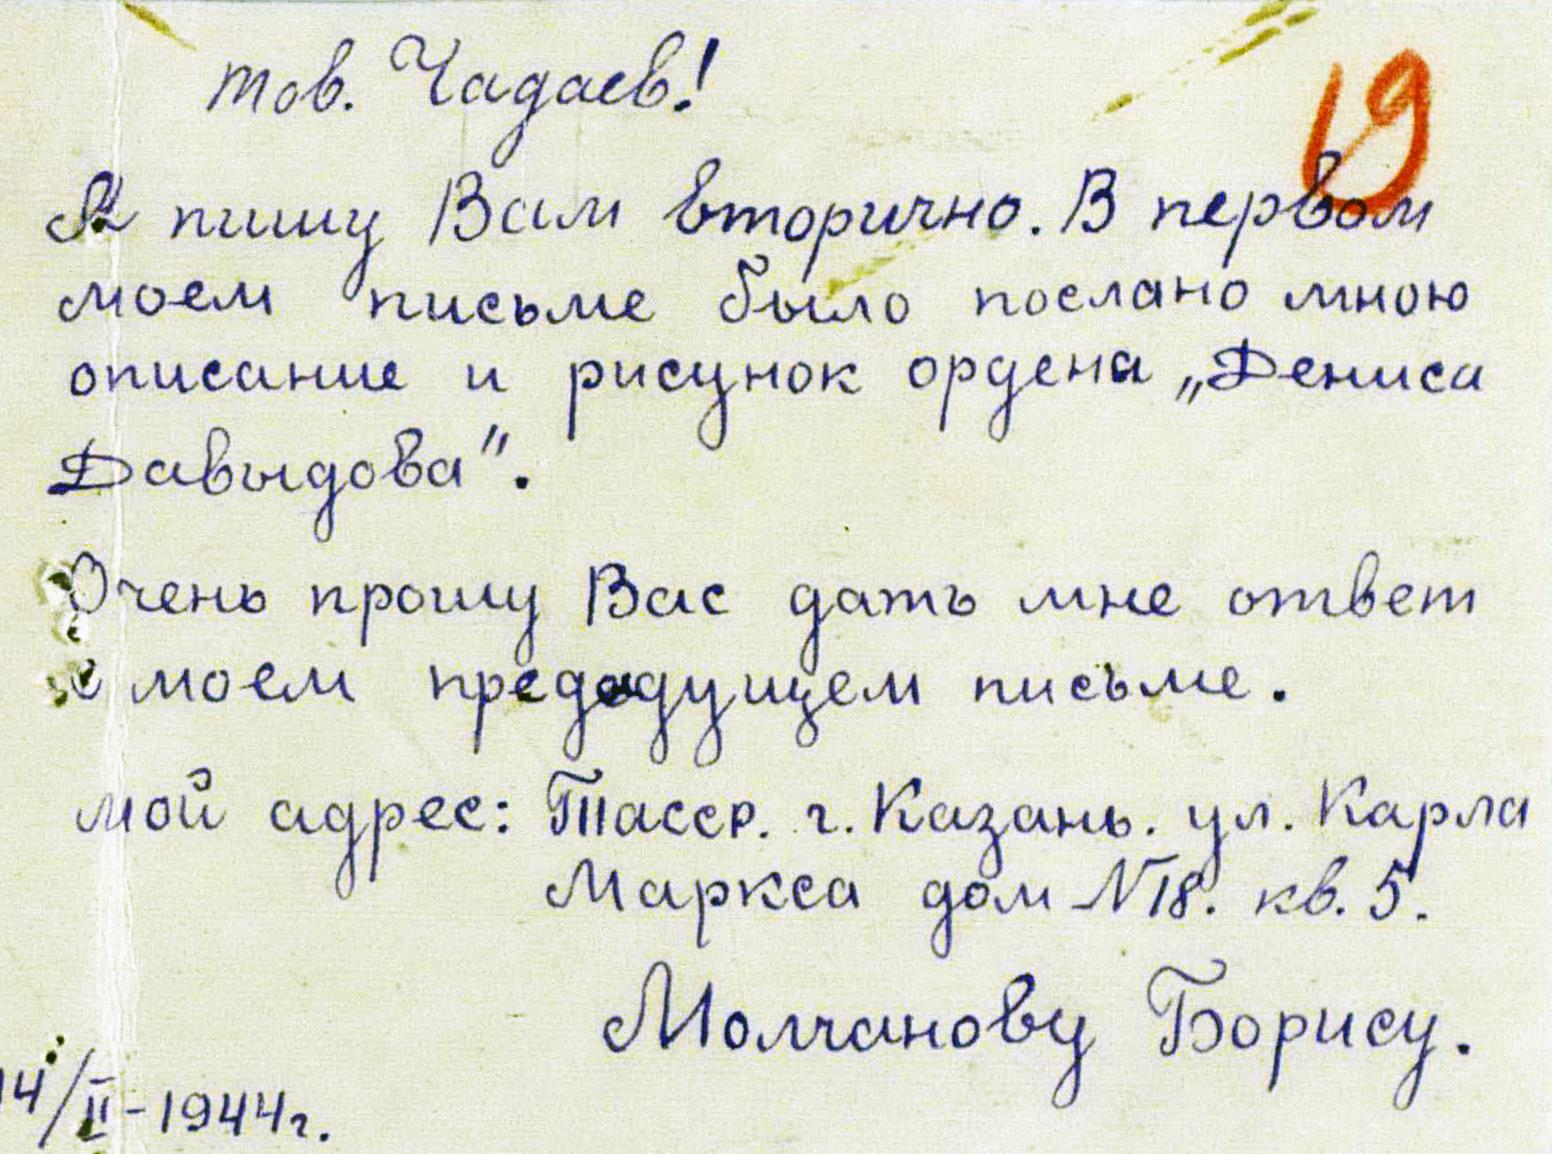 тов. Чадаев!
19
Я пишу Вам вторично. В первом
моем письме было послано мною
описание и рисунок ордена „Дениса
Давыдова".
Очень прошу Вас дать мне ответ
о моем предедущем письме.
мой адрес: Тасср. г. Казань. ул. Карла
Маркса дом №18. кв. 5.
Молчанову Борису.
14/II-1944г.